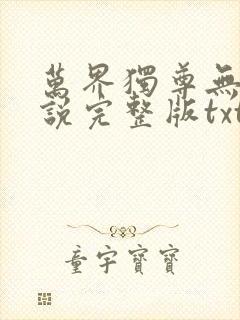 萬界獨尊無
說完整版txt
童宇寶寶